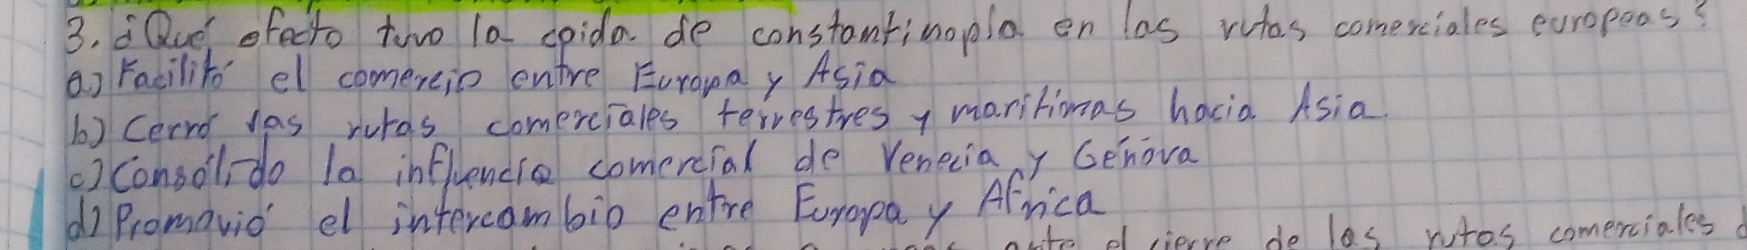 3. ¿Qué efecto tuvo la caida de constantinopla en las rutas comerciales europeas?
a) Facilitó el comercio entre Europa y Asia
b) Cerró las rutas comerciales terrestres y maritimas hacia Asia.
c) Consolido la influencia comercial de Venecia y Genova
d) Promovió el intercambio entre Europa y Africa
ante el cierre de las rutas comerciales